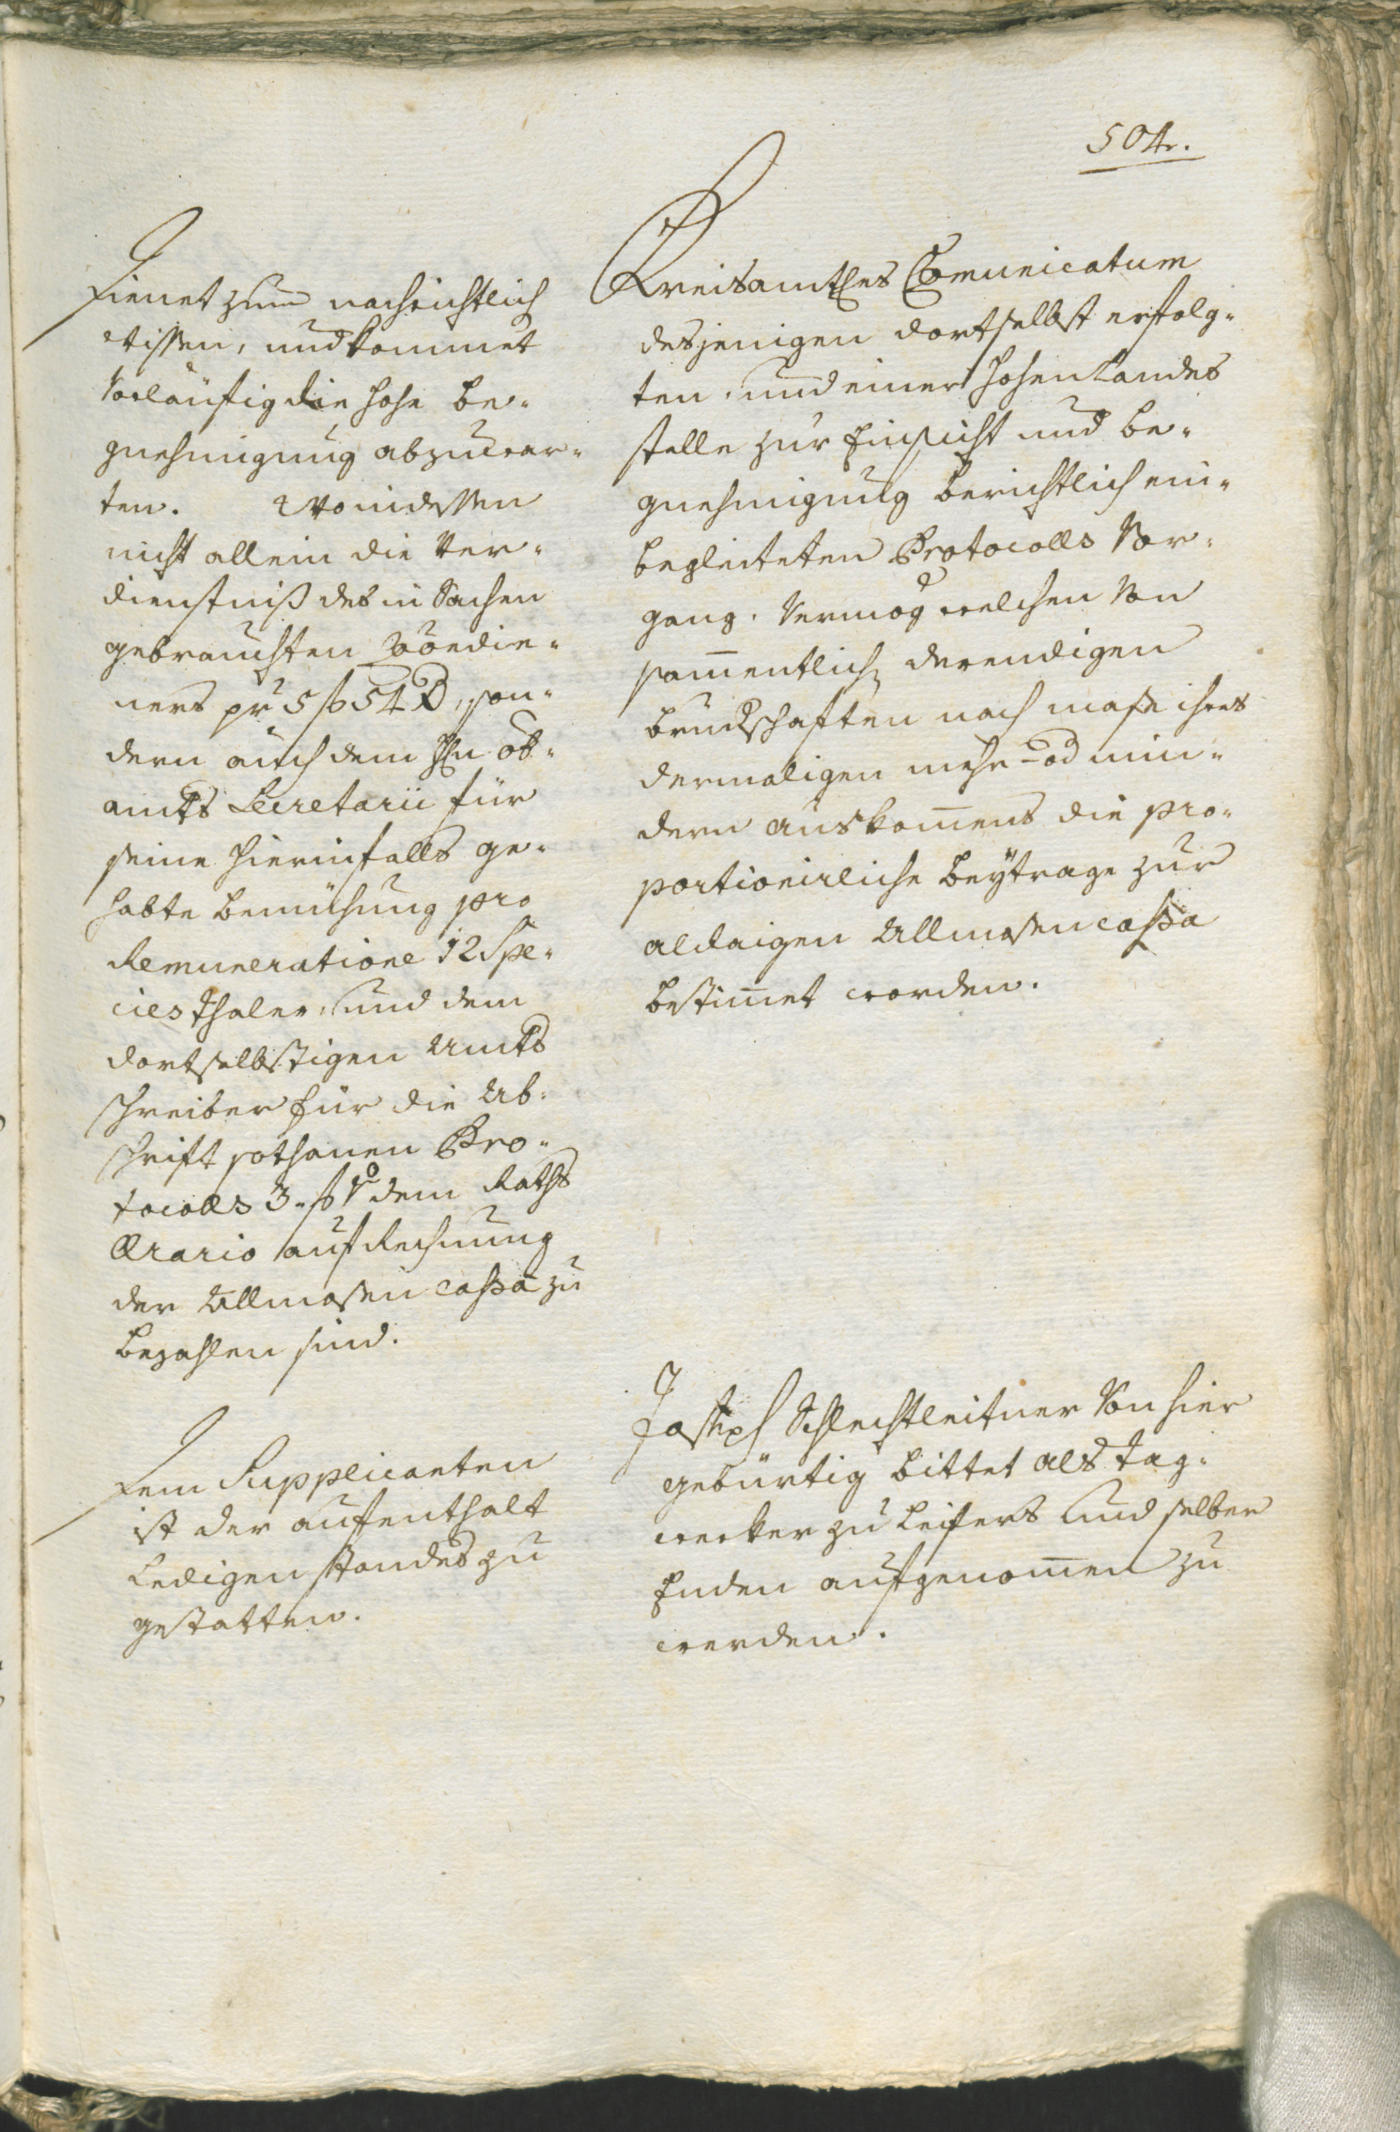 504.
Dienet zum nachrichtlich
Wissen, und kommet
Vorläufig die hohe be-
gnehmigung abzuwar-
ten. Wo indessen
nicht allein die Ver-
dienstniß des in Sachen
gebrauchten
ners pr 5 f 54 x, son-
dern auch dem Hn ob-
amts Secretarii für
seine hierinfalls ge-
habte bemühung pro
Remuneratione 12 Spe-
cies thaler, und dem
dortselbstigen Amts
schreiber für die Ab-
schrift sothanen Pro-
tocolls 3. f dem Raths
Ærario auf Rechnung
der Allmosen Cassa zu
bezahlen sind.
Dem Supplicanten
ist der aufenthalt
Ledigen standes zu
gestatten.
Kreisamtles Comunicatum
desjenigen dortselbst erfolg-
ten, und einer hohen Landes
stelle zur Einsicht und be-
gnehmigung berichtlich ein-
begleiteten Protocolls Vor-
gang. Vermög welchen Von
sam̄entlich derendigen
bruderschaften nach mase ihres
dermaligen mehr od min-
dern auskom̄ens die pro-
portionirliche beÿtrage zur
aldaigen Allmosencassa
bestim̄et worden.
Joseph Schlechtleitner Von hier
gebürtig bittet als tag-
werker zu Leifers und selber
Enden aufgenom̄en zu
werden.